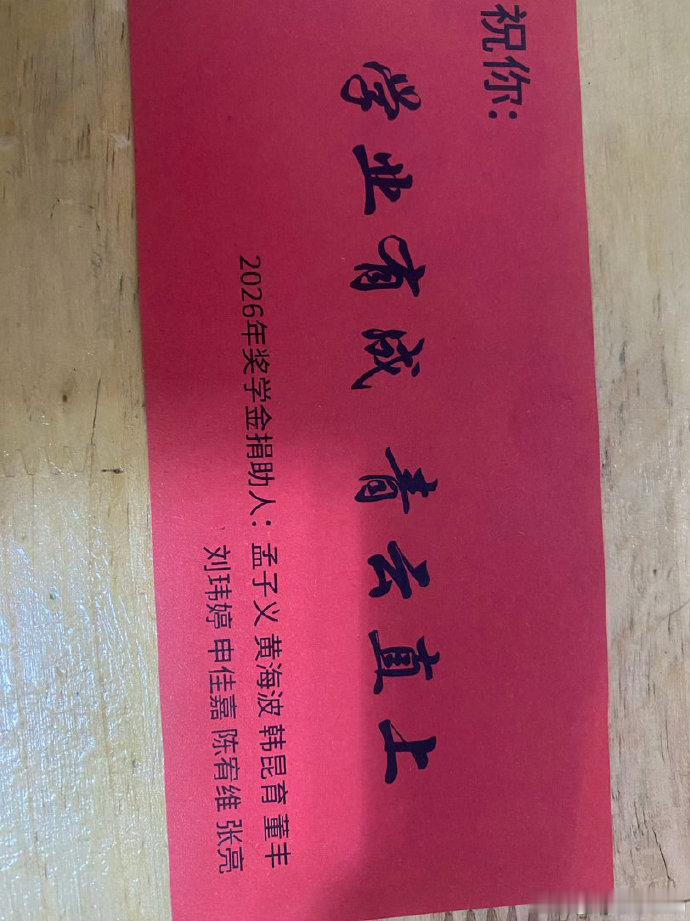 祝你:
学业有成 青云直上
2026年奖学金捐助人: 孟子义 黄海波 韩昆育 董丰
刘玮婷 申佳嘉 陈宥维 张亮